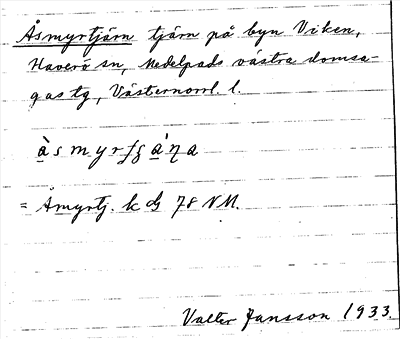 Åsmyrtjärn tjärn på byn Viken,
Haverö sn, Medelpads västra domsa-
gas tg, Västernorrl. l.
= Åmyrtj. k dj 78 NM.
Valter Jansson 1933.